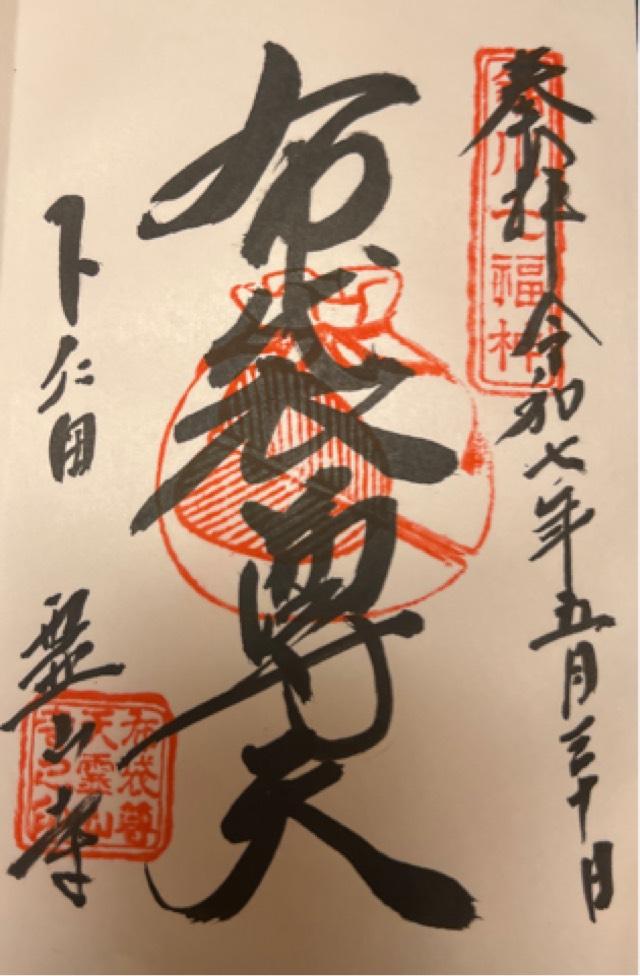 奉拝 令和七年五月三十日
鏑川七福神
布袋尊天
下仁田 霊山寺
布袋尊
天靈山
寺之印